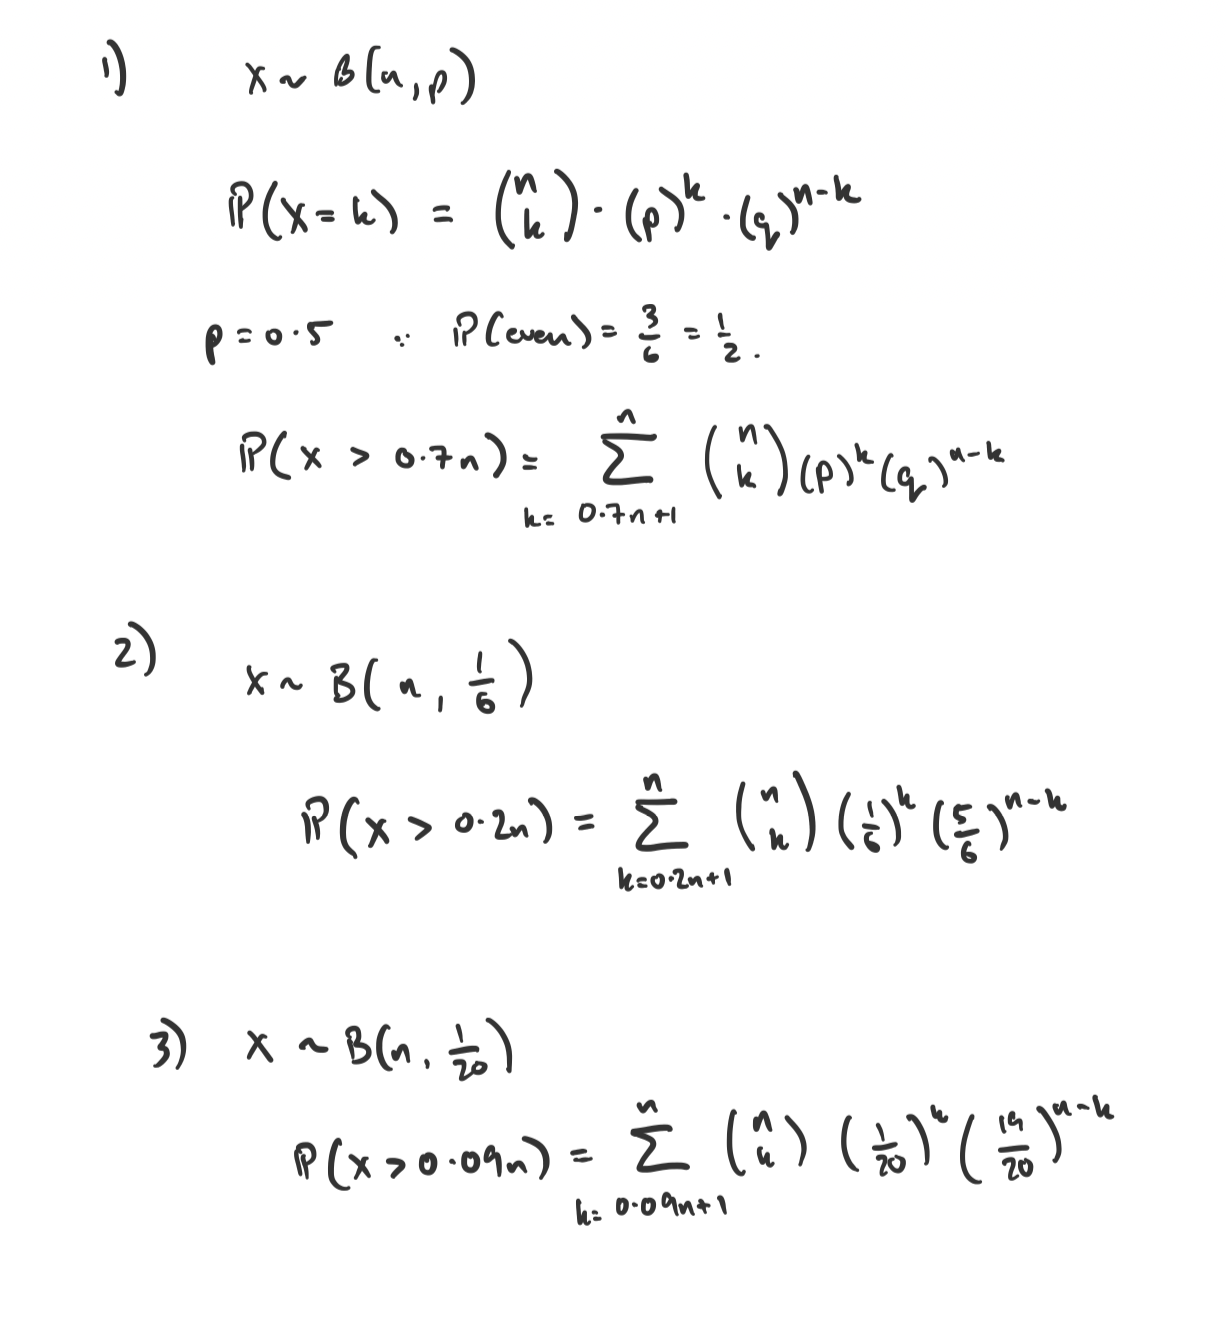 1) X ~ B(n, p)
ℙ(X = k) = (n k) · (p)^k · (q)^{n-k}
p = 0.5 ∵ ℙ(even) = 3/6 = 1/2.
ℙ(X > 0.7n) = ∑_{k = 0.7n+1}^{n} (n k) (p)^k (q)^{n-k}
2) X ~ B(n, 1/6)
ℙ(X > 0.2n) = ∑_{k=0.2n+1}^{n} (n k) (1/6)^k (5/6)^{n-k}
3) X ~ B(n, 1/20)
ℙ(X > 0.09n) = ∑_{k = 0.09n+1}^{n} (n k) (1/20)^k (19/20)^{n-k}